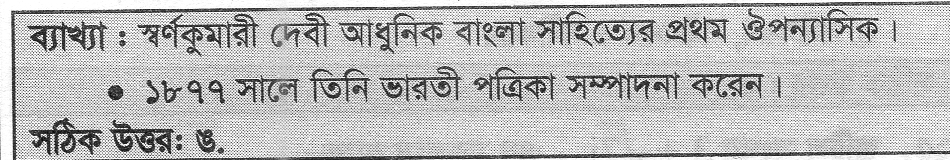 ব্যাখ্যা : স্বর্ণকুমারী দেবী আধুনিক বাংলা সাহিত্যের প্রথম ঔপন্যাসিক।
• ১৮৭৭ সালে তিনি ভারতী পত্রিকা সম্পাদনা করেন।
সঠিক উত্তর: ঙ.